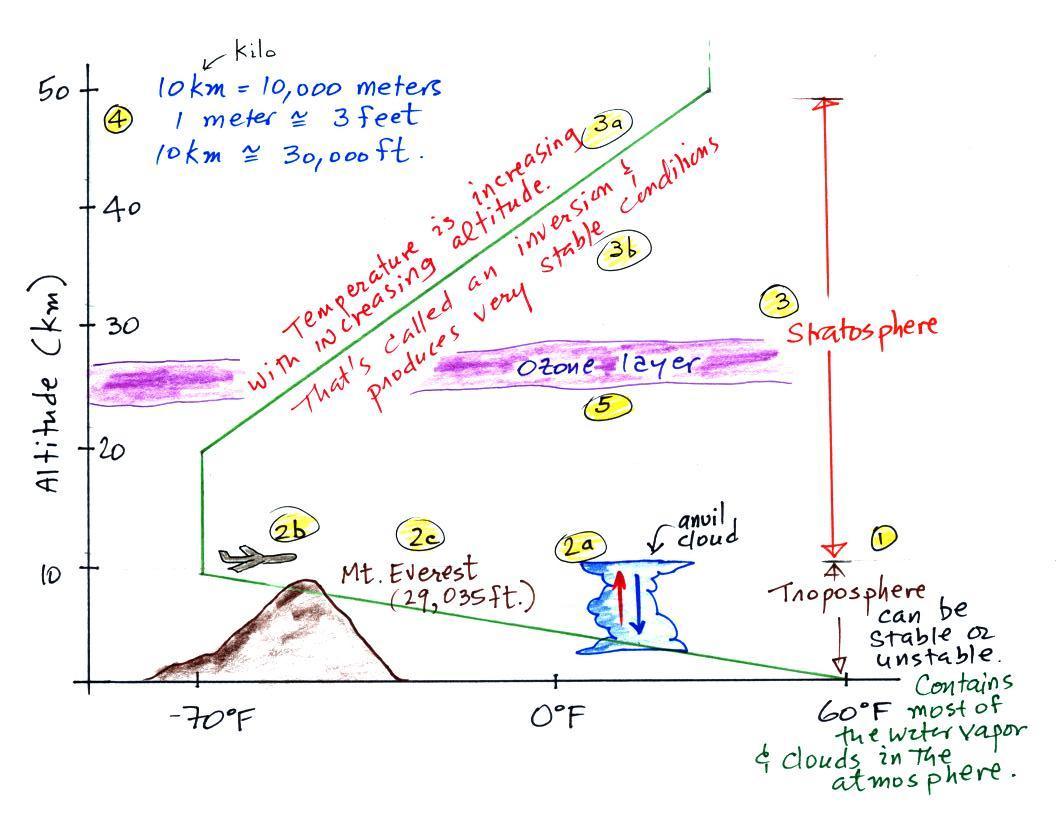 kilo
10km = 10,000 meters
④ 1 meter ≅ 3 feet
10km ≅ 30,000 ft.
50
40
30
20
10
Altitude (km)
3a
Temperature is increasing
with increasing altitude.
That's called an inversion &
produces very stable conditions
3b
3
Stratosphere
Ozone layer
5
2b
2c
2a
anvil
cloud
1
Mt. Everest
(29,035 ft.)
Troposphere
can be
stable or
unstable.
Contains
most of
the water vapor
& clouds in the
atmosphere.
-70°F
0°F
60°F